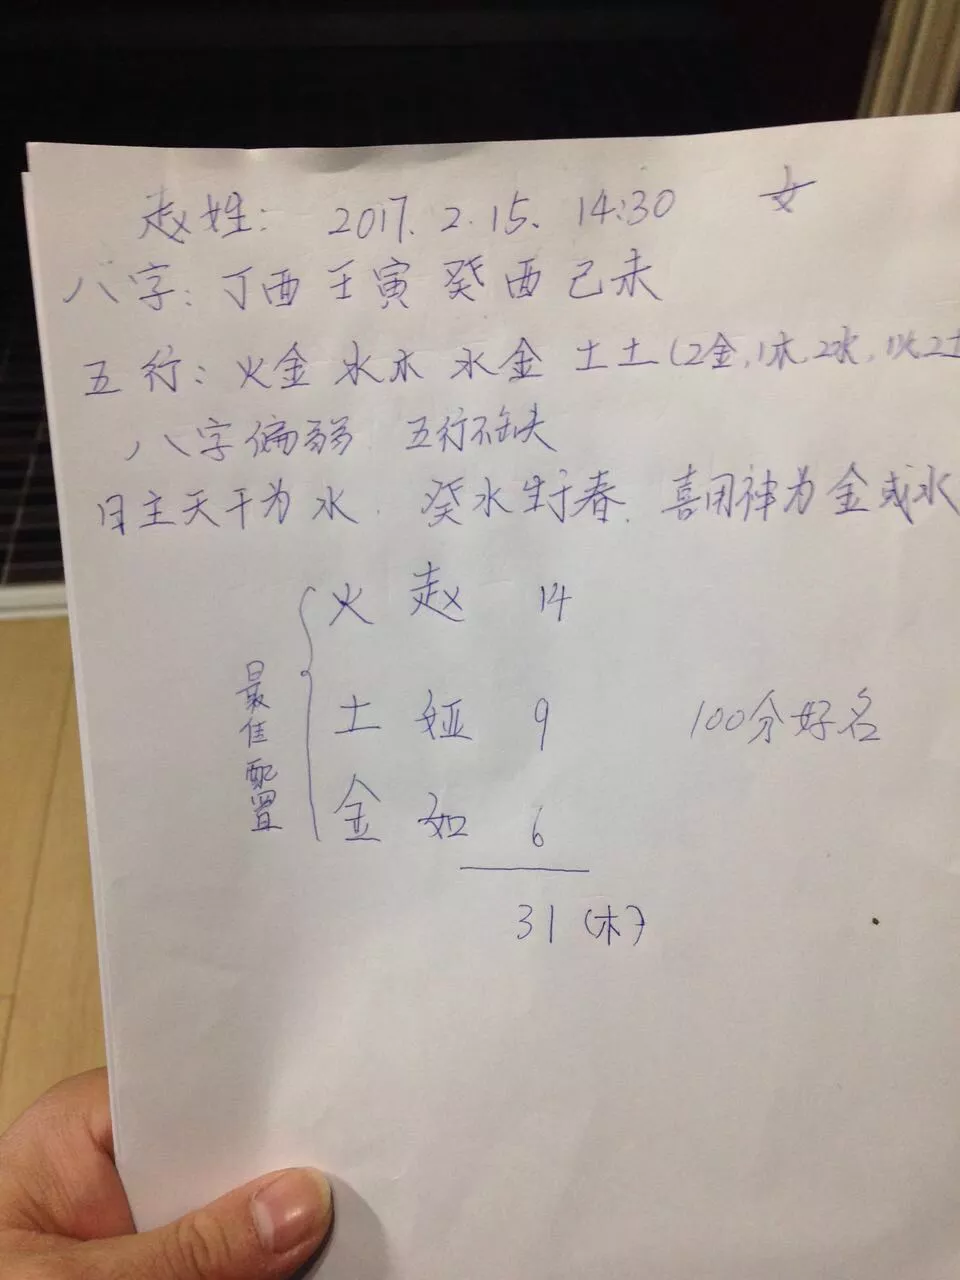 赵姓: 2017.2.15. 14:30 女
八字: 丁酉 壬寅 癸酉 己未
五行: 火金 水木 水金 土土(2金,1木,2水,1火2土
八字偏弱 五行不缺
日主天干为水. 癸水生于春. 喜用神为金或水
最佳配置
火 赵 14
土 娅 9 100分好名
金 如 6
31 (木)